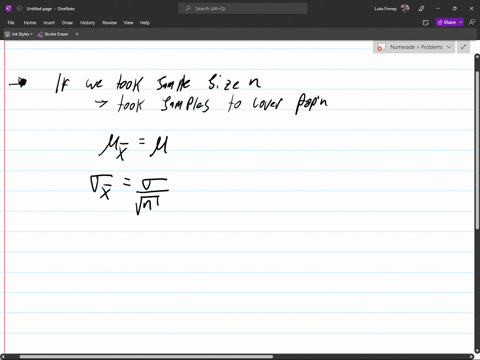 Untitled page - OneNote
Search (Alt+Q)
Luke Finney
File
Home
Insert
Draw
History
Review
View
Help
Share
Ink Styles
Stroke Eraser
Numerade > Problems
→ If we took sample size n
→ took samples to cover pop'n
μx̄ = μ
σx̄ = σ/√n